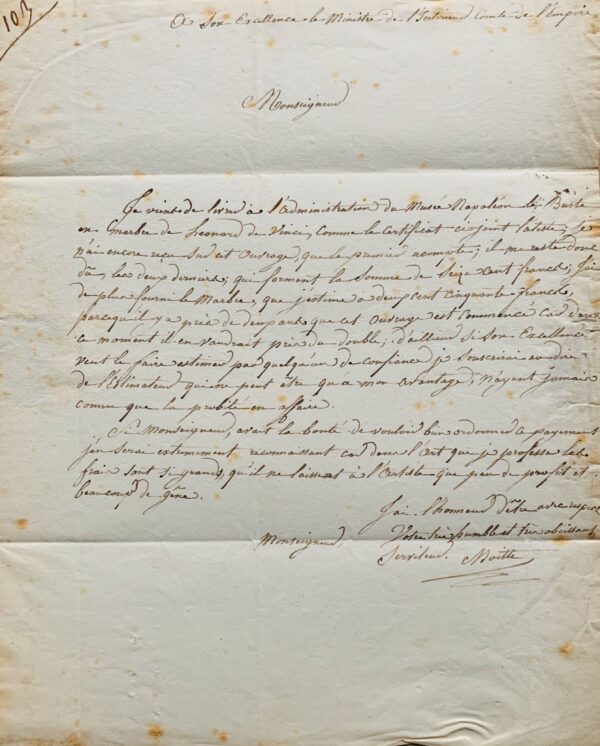 103
A Son Excellence le Ministre de l'Interieur Comte de l'Empire
Monseigneur
Je viens de livrer à l'administration du Musée Napoléon le Buste
en Marbre de Leonard de Vinci, comme le certificat ci-joint l'atteste; je
n'ai encore reçu sur cet Ouvrage, que le premier acompte; il me reste donc
dû, les deux derniers; que forment la Somme de Seize Cent francs; J'ai
de plus fourni le Marbre, que j'estime a deux cent cinquante francs,
parcequ'il y a près de deux ans que cet Ouvrage est commencé car dans
ce moment il en vaudrait près du double; d'ailleur si Son Excellence
veut le faire estimer par quelqu'un de confiance, je Souscrirai au dire
de l'Estimateur qui ne peut être qu'a mon avantage, n'ayant jamais
connu que la probité en affaire.
Si Monseigneur, avait la bonté de vouloir bien ordonner ce payement
j'en serai extremement reconnaissant car dans l'art que je professe les
frais sont si grands, qu'il ne laissent à l'Artiste que peu de profit et
beaucoup de gêne.
J'ai l'honneur d'être avec respect
Monseigneur, Votre très humble et très obéissant
Serviteur. Moitte